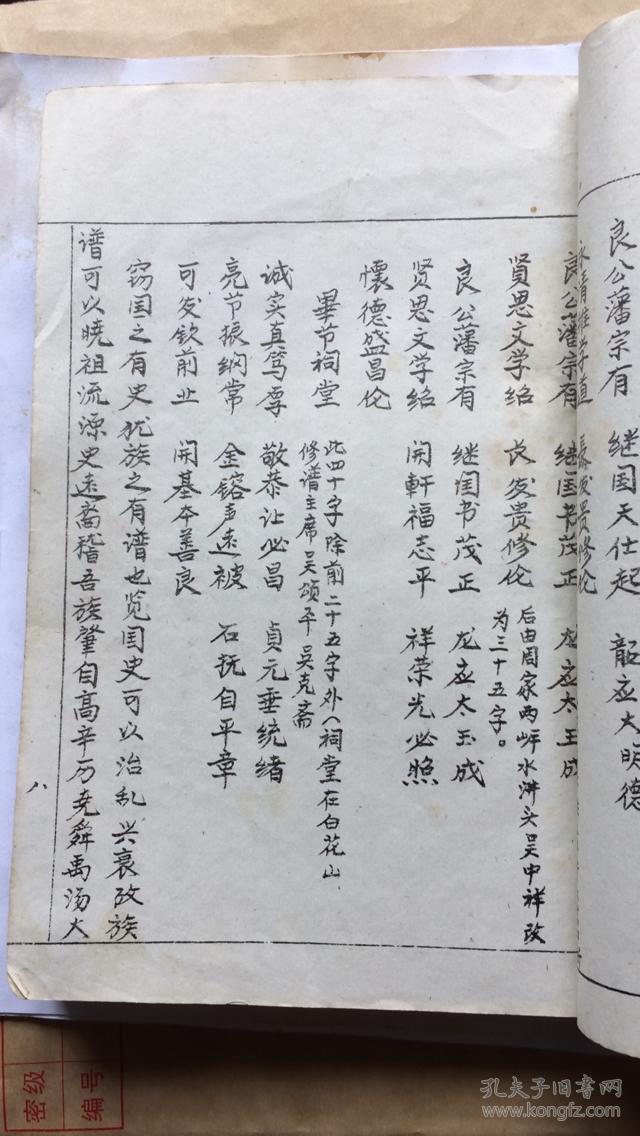 良公藩宗有 继国天仕起 韶应大明德
良公藩宗有 继国书茂正 龙应太玉成
贤思文学绍 长发贵修伦
后由周家两岈水湃头吴中祥改
为三十五字。
良公藩宗有 继国书茂正 龙应太玉成
贤思文学绍 開軒福志平 祥荣光必照
懷德盛昌伦
畢节祠堂
此四十字除前二十五字外（祠堂在白花山
修谱主席吴颂平吴克斋
诚实真笃厚 敬恭让必昌 贞元垂统绪
亮节振纲常 金镕声远被 石抚自平章
可发钦前业 開基本善良
窃国之有史犹族之有谱也览国史可以治乱兴衰改族
谱可以晓祖流源史远裔稽吾族肇自高辛历尧舜禹汤大
八
密级
编号
孔夫子旧书网
www.kongfz.com